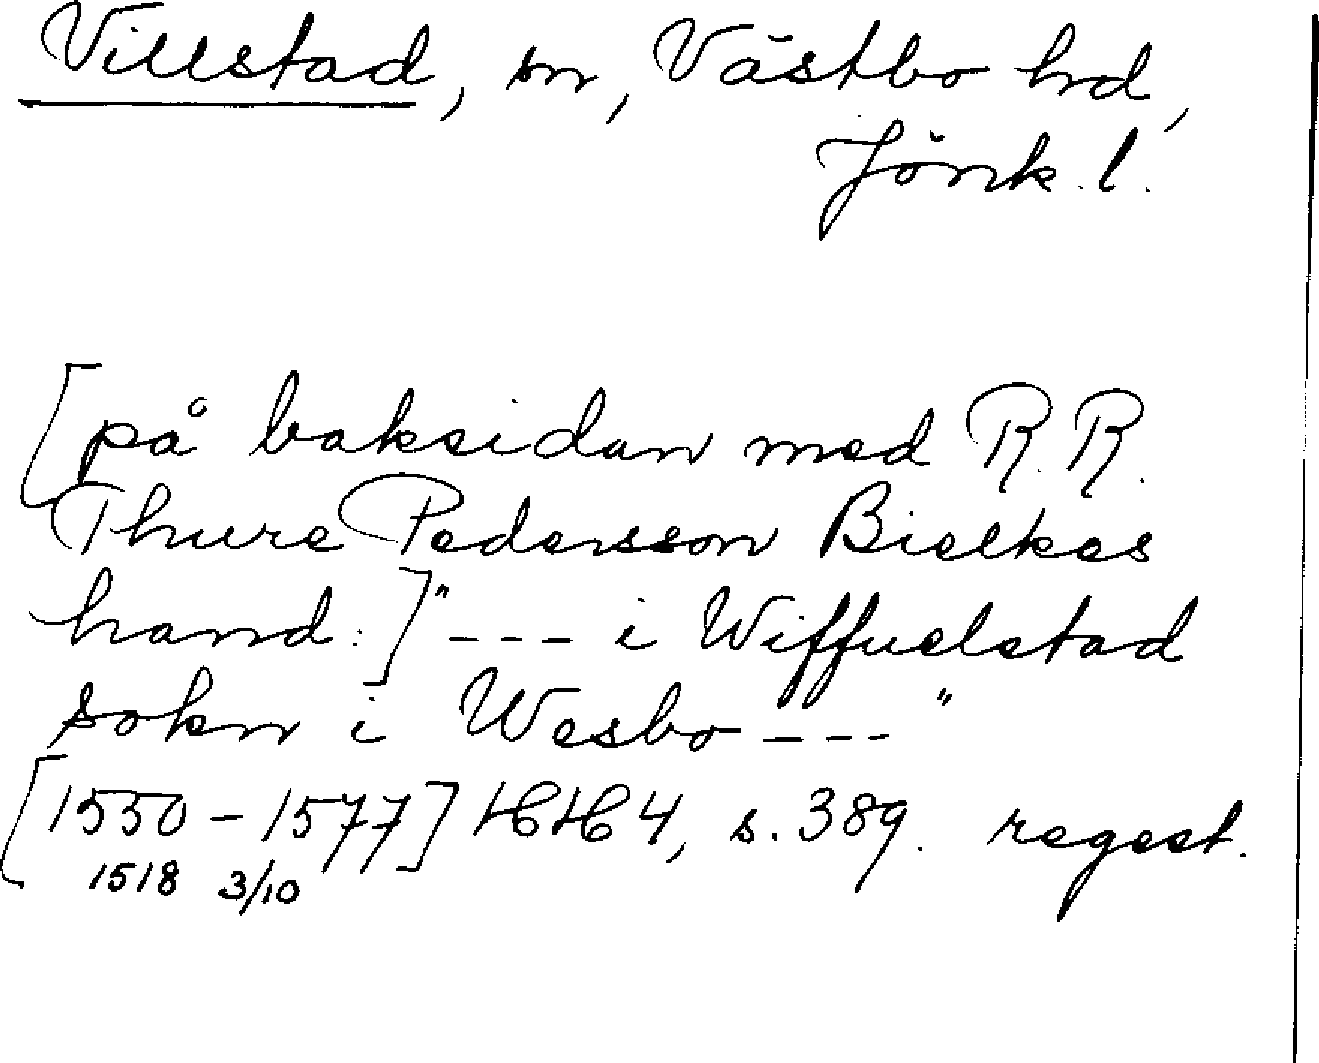 Villstad, sn, Västbo hd,
Jönk. l.
[på baksidan med R. R.
Thure Pedersson Bielkes
hand:]" --- i Wiffuelstad
sokn i Wesbo ---"
[1550-1577] HH 4, s. 389. regest.
1518 3/10